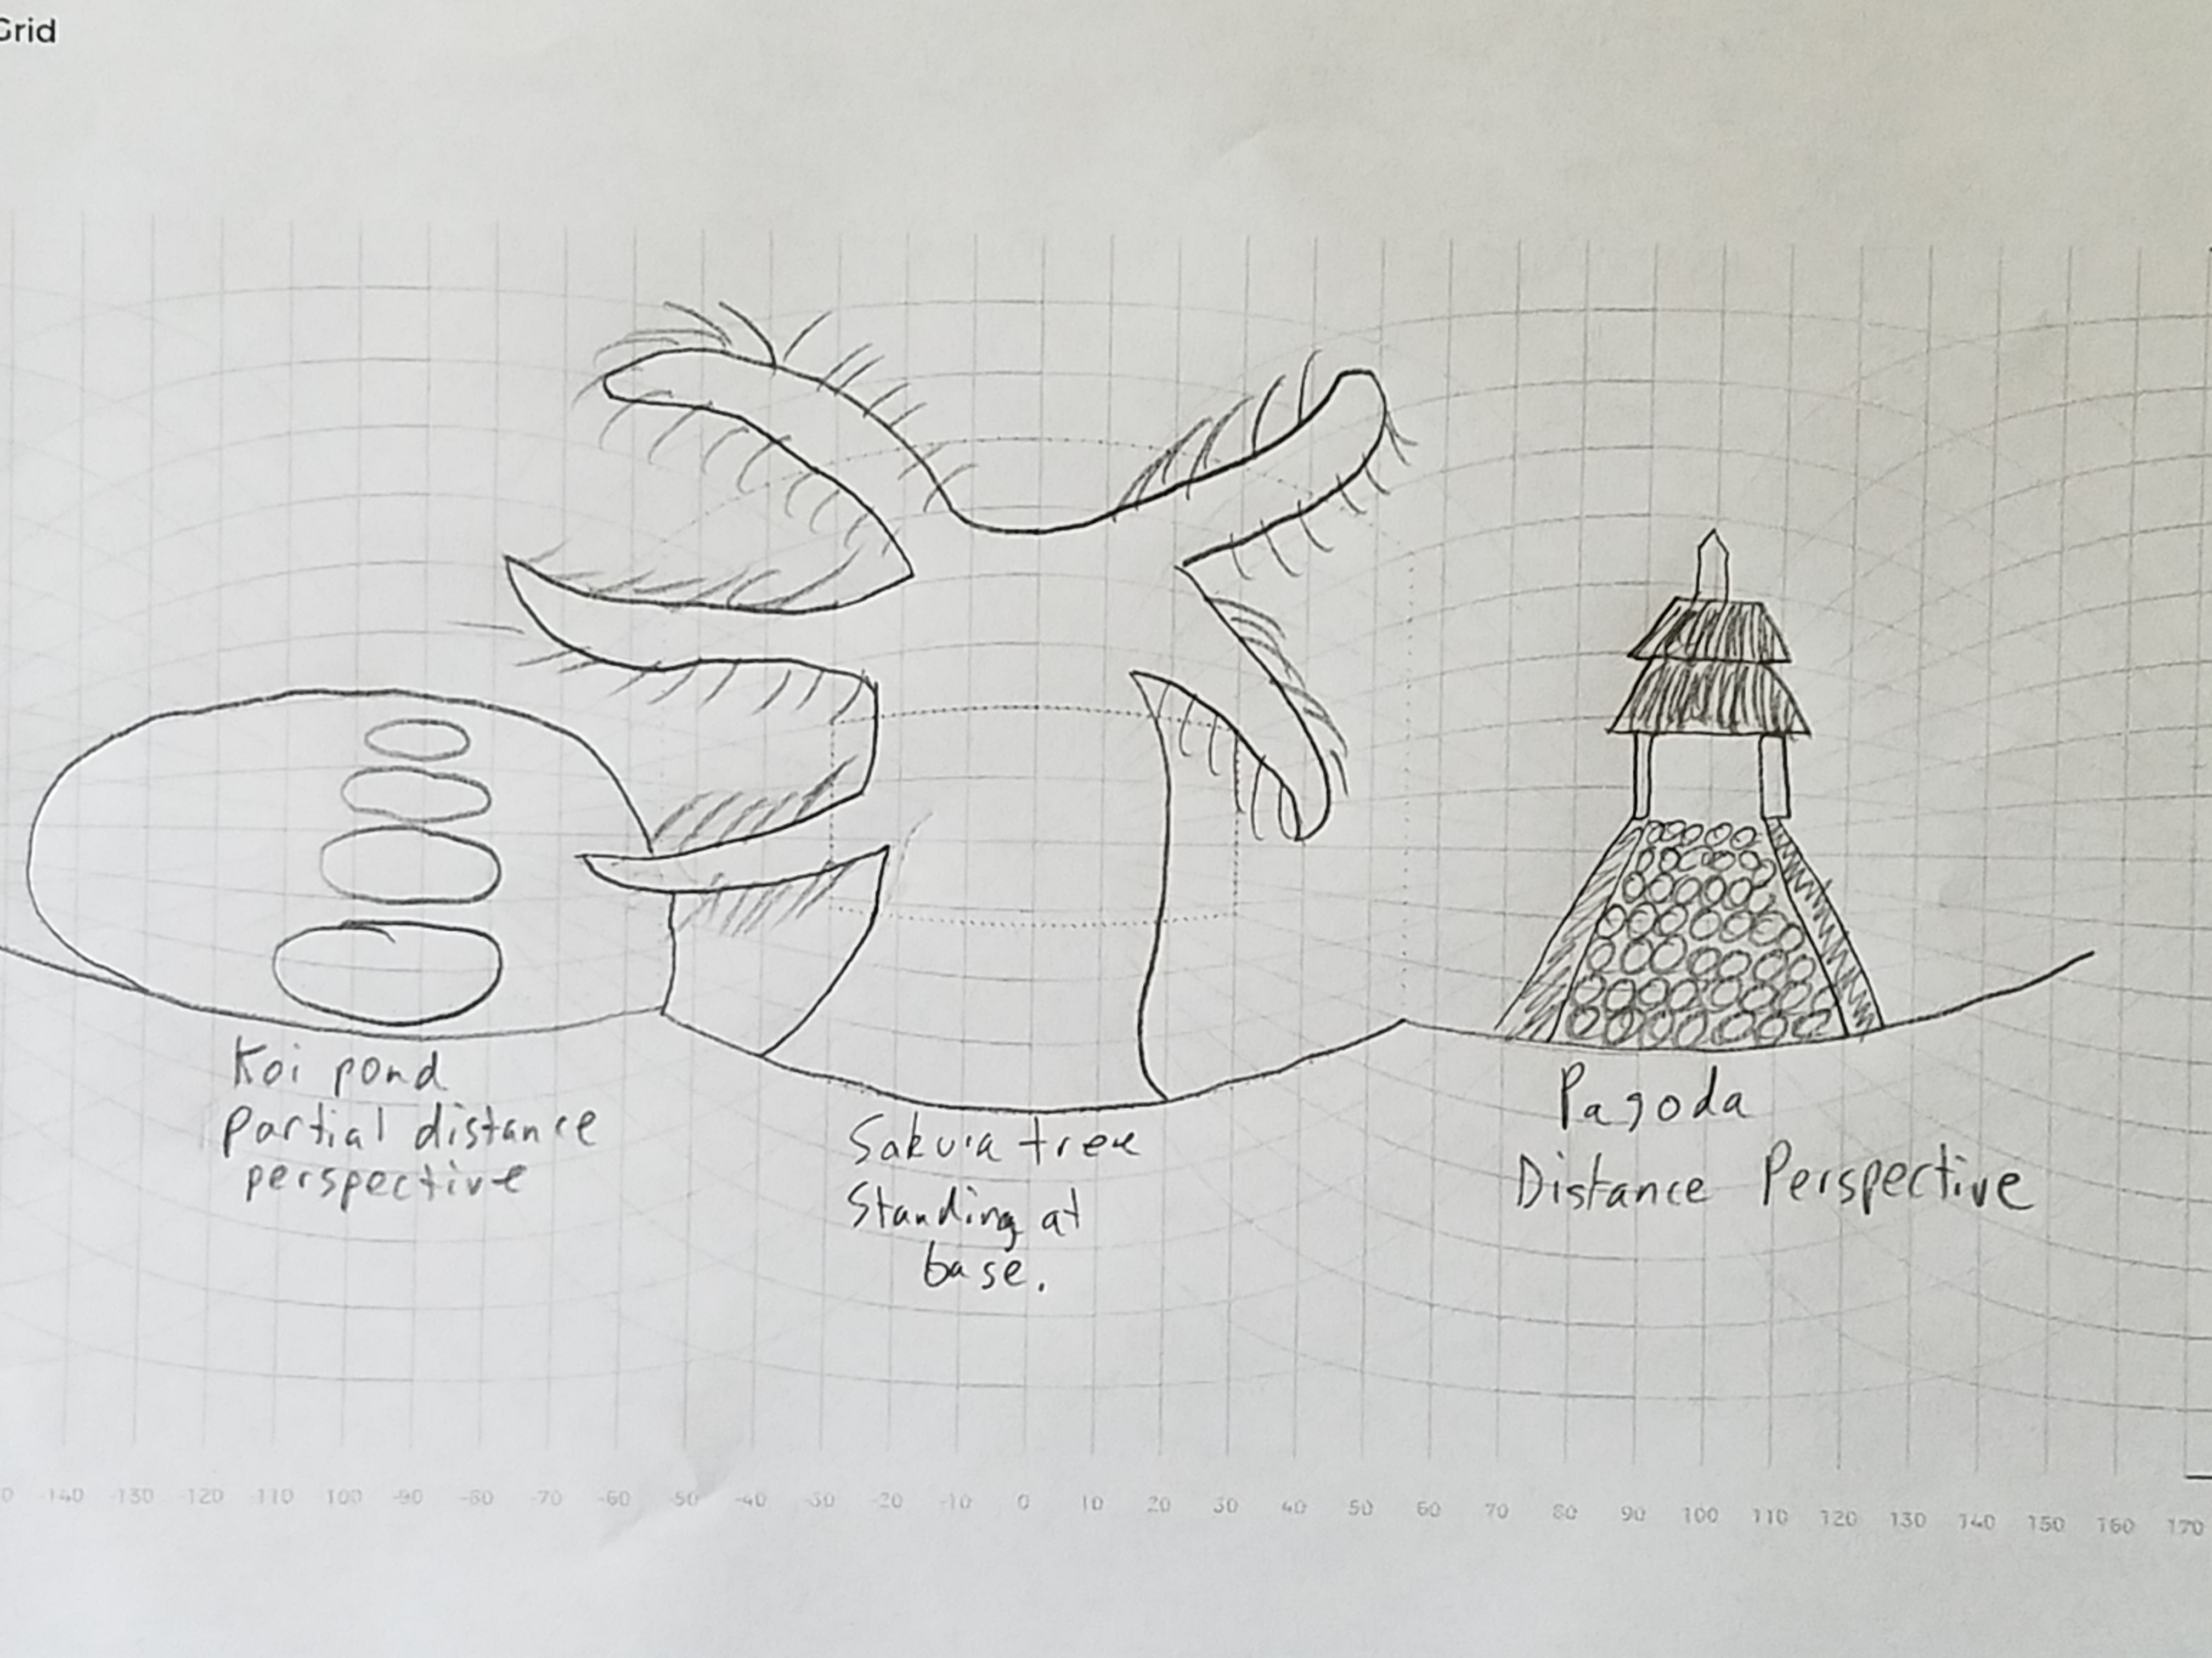 Grid
Koi pond
partial distance
perspective
Sakura tree
Standing at
base.
Pagoda
Distance Perspective
-140 -130 -120 -110 100 -90 -80 -70 -60 -50 -40 -30 -20 -10 0 10 20 30 40 50 60 70 80 90 100 110 120 130 140 150 160 170